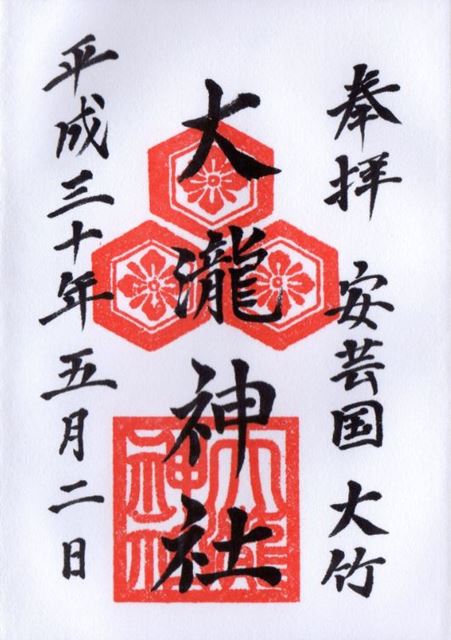 奉拝 安芸国 大竹
大瀧神社
平成三十年五月二日
大瀧神社